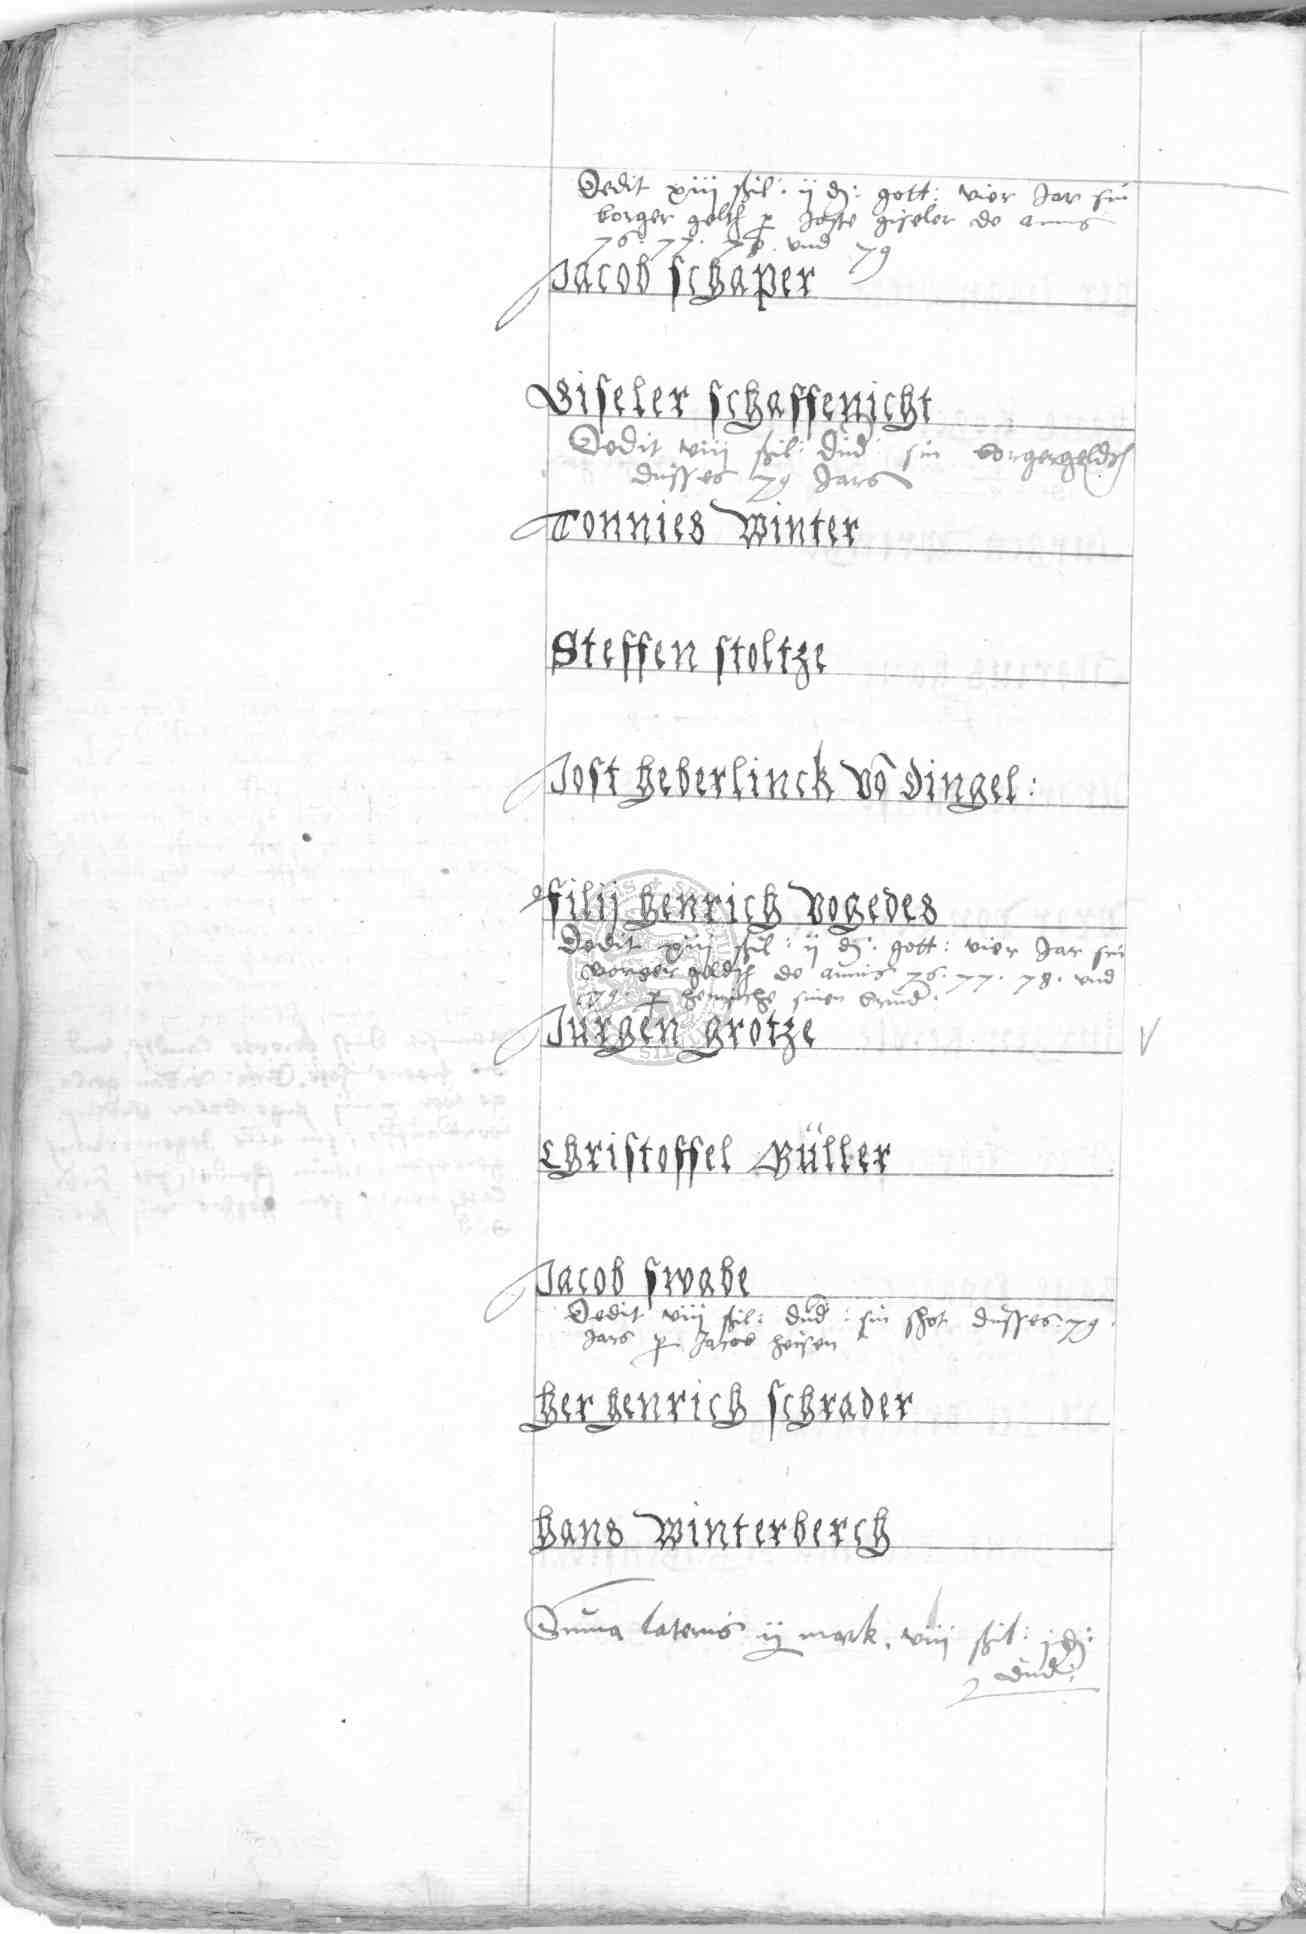 Dedit xiij ßhil: ij d: gott: vier Jar sin
borger gelth p Joste giseler de annis
76. 77. 78. vnd 79
Jacob schaper
Giseler schaffenicht
Dedit viij ßhil: dud: sin borgergeldth
dusses 79 Jars
Tonnies Winter
Steffen stoltze
Jost heberlinck vō dingel:
filij henrich vogedes
Dedit xiij ßhil: ij d: gott: vier Jar sin
borger geldth de annis 76. 77. 78. vnd
79 p henriche sinen
Jurgen grotze
Christoffel Büller
Jacob swabe
Dedit viij ßhil: dud: sin shot dusses 79.
Jars p Jacob heisen
her henrich schrader
hans Winterberch
Suma lateris ij mark. viij ßhil: j d:
dud: